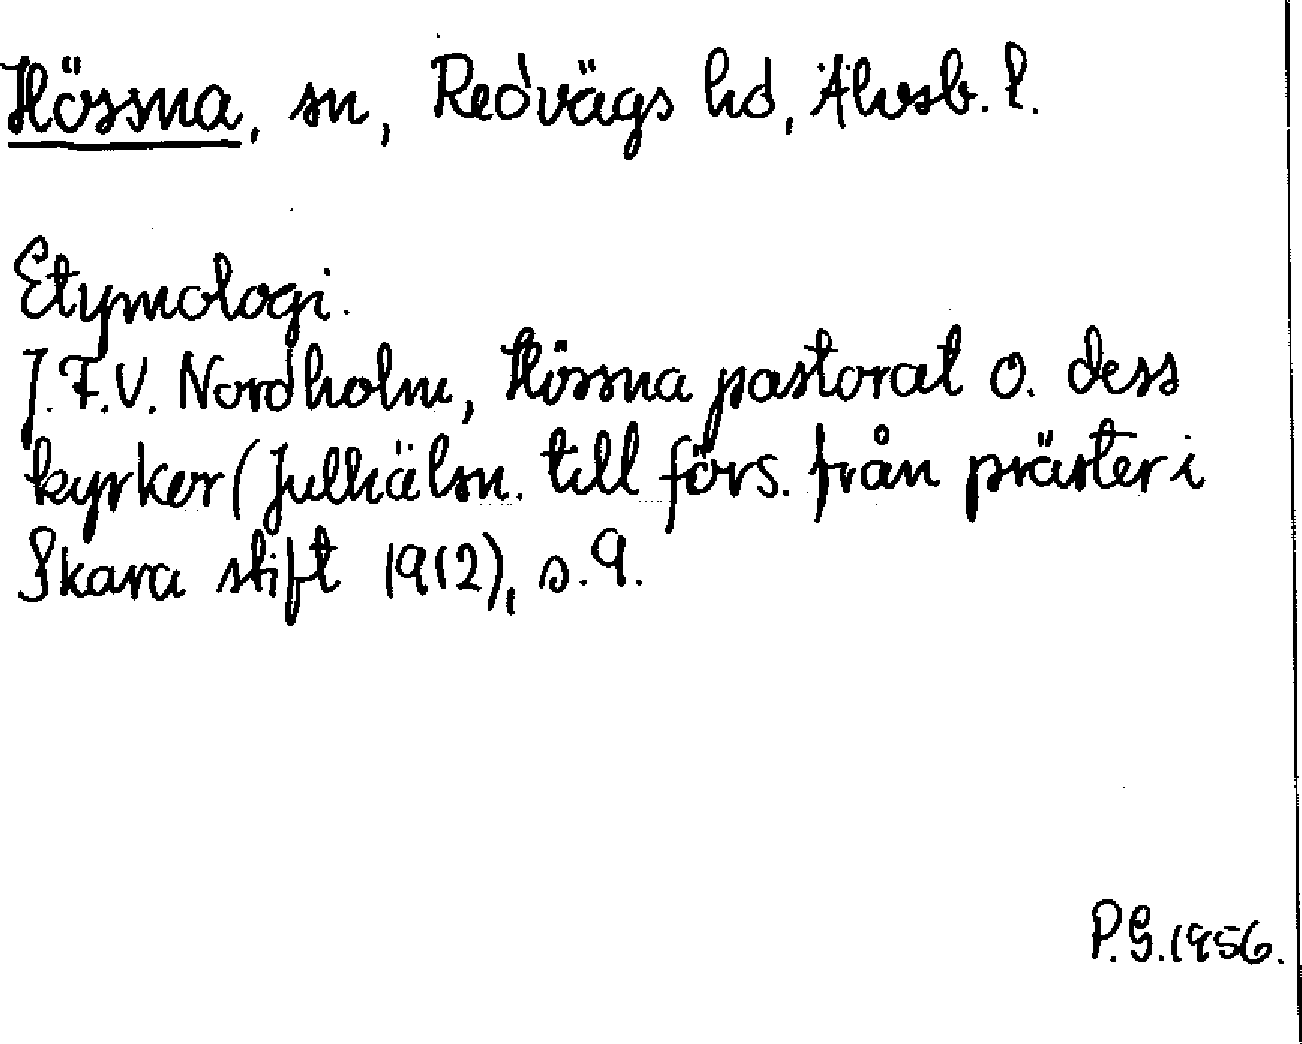 Hössna, sn, Redvägs hd, Älvsb. l.
Etymologi.
J.F.V. Nordholm, Hössna pastorat o. dess
kyrkor (Julhälsn. till förs. från präster i
Skara stift 1912), s. 9.
P.G. 1956.